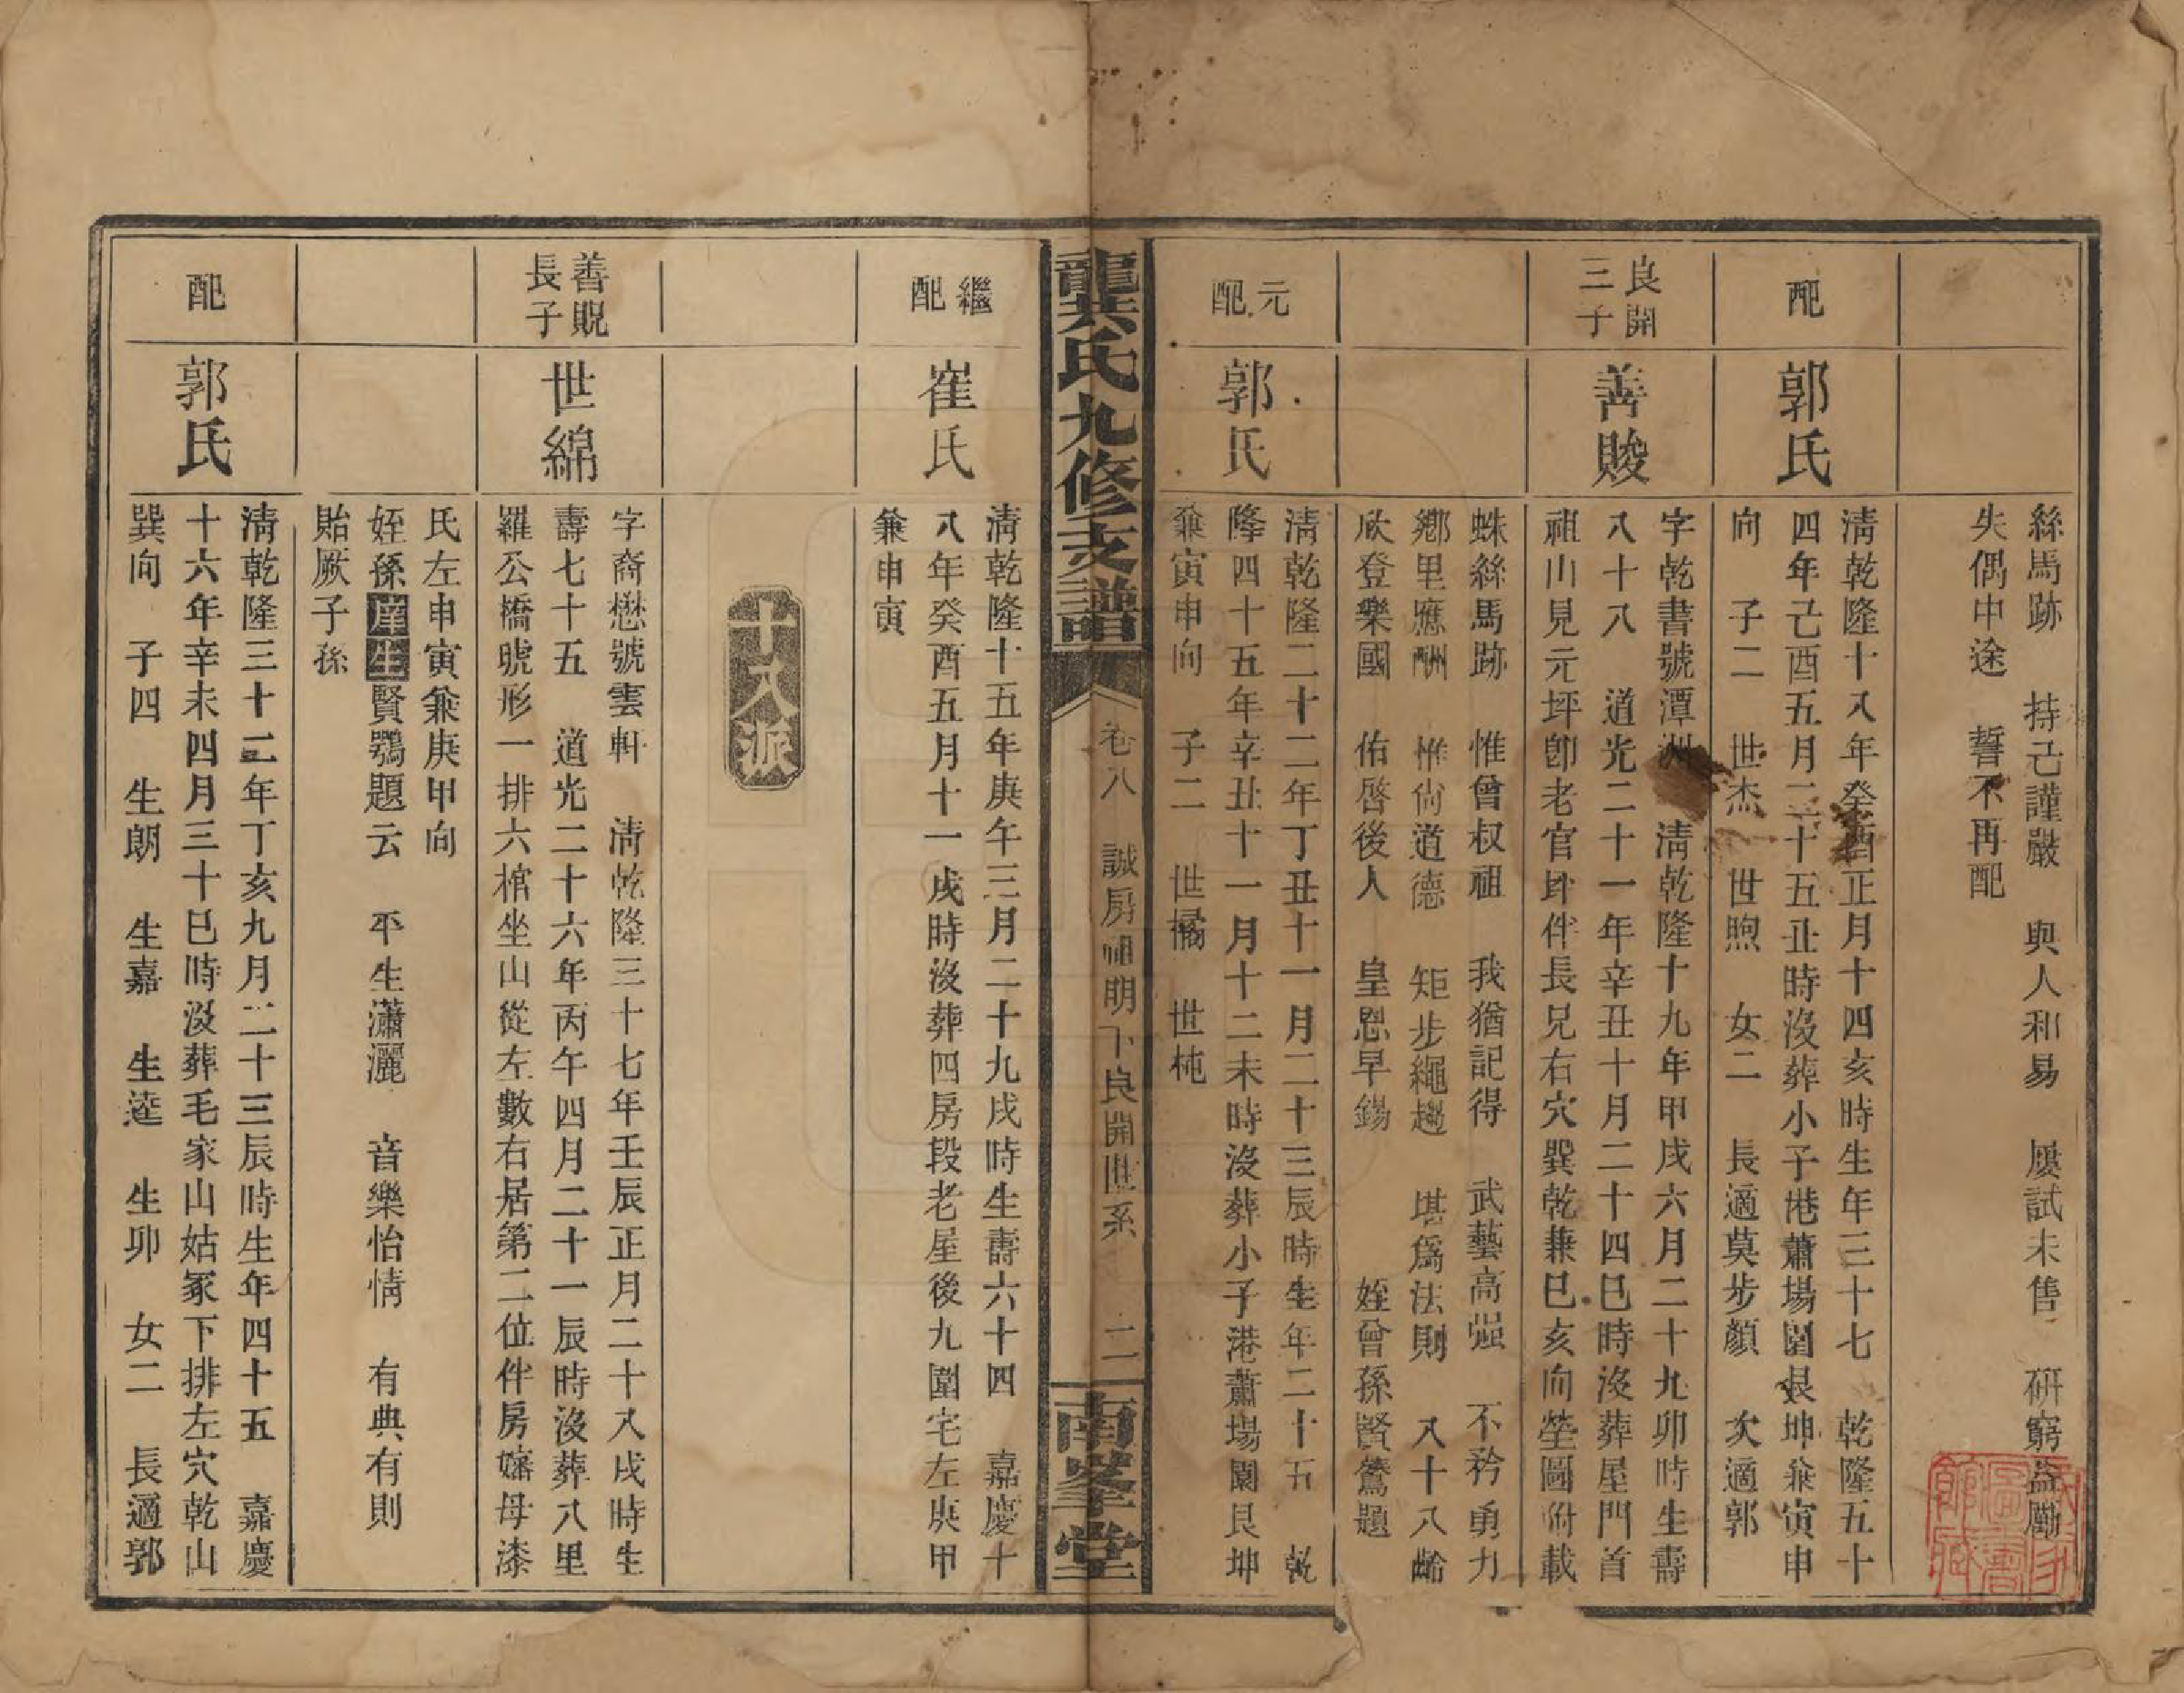 絲馬跡　持己謹嚴　與人和易　屢試未售　硏窮益勵
失偶中途　誓不再配
配
郭氏
淸乾隆十八年癸酉正月十四亥時生年三十七　乾隆五十
四年己酉五月二十五丑時沒葬小子港蕭場園艮坤兼寅申
向　子二　世杰　世煦　女二　長適莫步顏　次適郭
良開
三子
善賤
字乾書號潭洲　淸乾隆十九年甲戌六月二十九卯時生壽
八十八　道光二十一年辛丑十月二十四巳時沒葬屋門首
祖山見元坪卽老官坢伴長兄右穴巽乾兼巳亥向塋圖附載
蛛絲馬跡　惟曾叔祖　我猶記得　武藝高强　不矜勇力
鄕里應酬　惟尙道德　矩步繩趨　堪爲法則　八十八齡
欣登樂國　佑啓後人　皇恩早錫　姪曾孫賢鶯題
元
配
郭氏
淸乾隆二十二年丁丑十一月二十三辰時生年二十五　乾
隆四十五年辛丑十一月十二未時沒葬小子港蕭場園艮坤
兼寅申向　子二　世橘　世杶
龍共氏九修支譜
卷八　誠房福明下良開世系　二
南峯堂
繼
配
崔氏
淸乾隆十五年庚午三月二十九戌時生壽六十四　嘉慶十
八年癸酉五月十一戌時沒葬四房段老屋後九園宅左庚甲
兼申寅
十八派
善貺
長子
世綿
字裔懋號雲軒　淸乾隆三十七年壬辰正月二十八戌時生
壽七十五　道光二十六年丙午四月二十一辰時沒葬八里
羅公橋虎形一排六棺坐山從左數右居第二位伴房嬸母漆
氏左申寅兼庚甲向
姪孫庠生賢鶚題云　平生瀟灑　音樂怡情　有典有則
貽厥子孫
配
郭氏
淸乾隆三十二年丁亥九月二十三辰時生年四十五　嘉慶
十六年辛未四月三十巳時沒葬毛家山姑冢下排左穴乾山
巽向　子四　生朗　生嘉　生逵　生卯　女二　長適郭